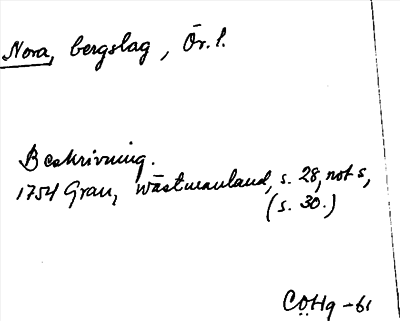 Nora, bergslag, Ör. l.
Beskrivning.
1754 Grau, Wästmanland, s. 28, not s,
(s. 30.)
COHg -61